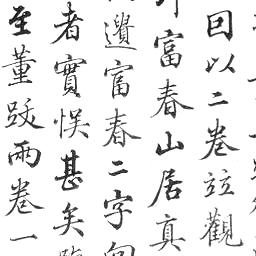 回以二卷竝觀
富春山居真
遺富春二字
者實悮甚矣
至董跋兩卷一